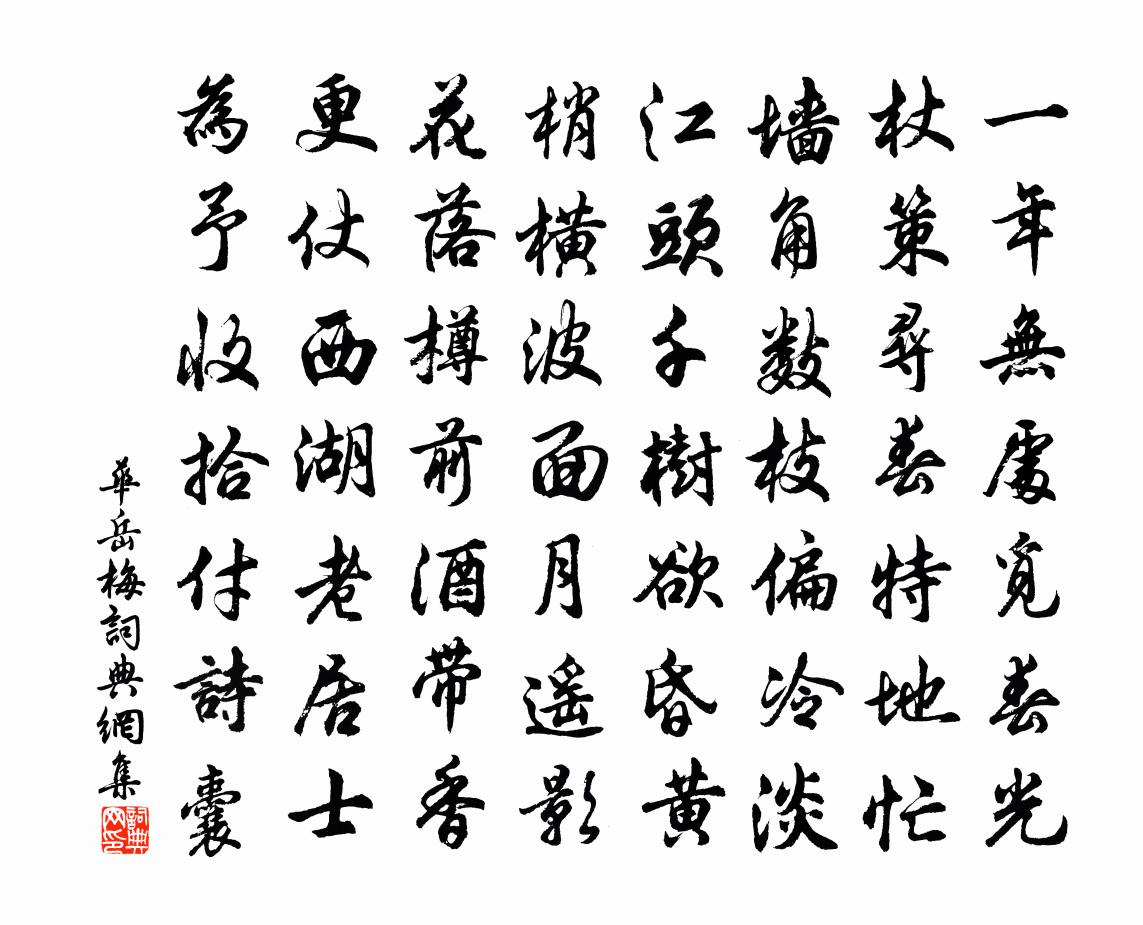 一年無處覓春光
杖策尋春特地忙
墙角數枝偏冷淡
江頭千樹欲昏黄
梢橫波面月遥影
花落樽前酒帶香
更仗西湖老居士
為予收拾付詩囊
華岳梅詞典網集
詞典網印